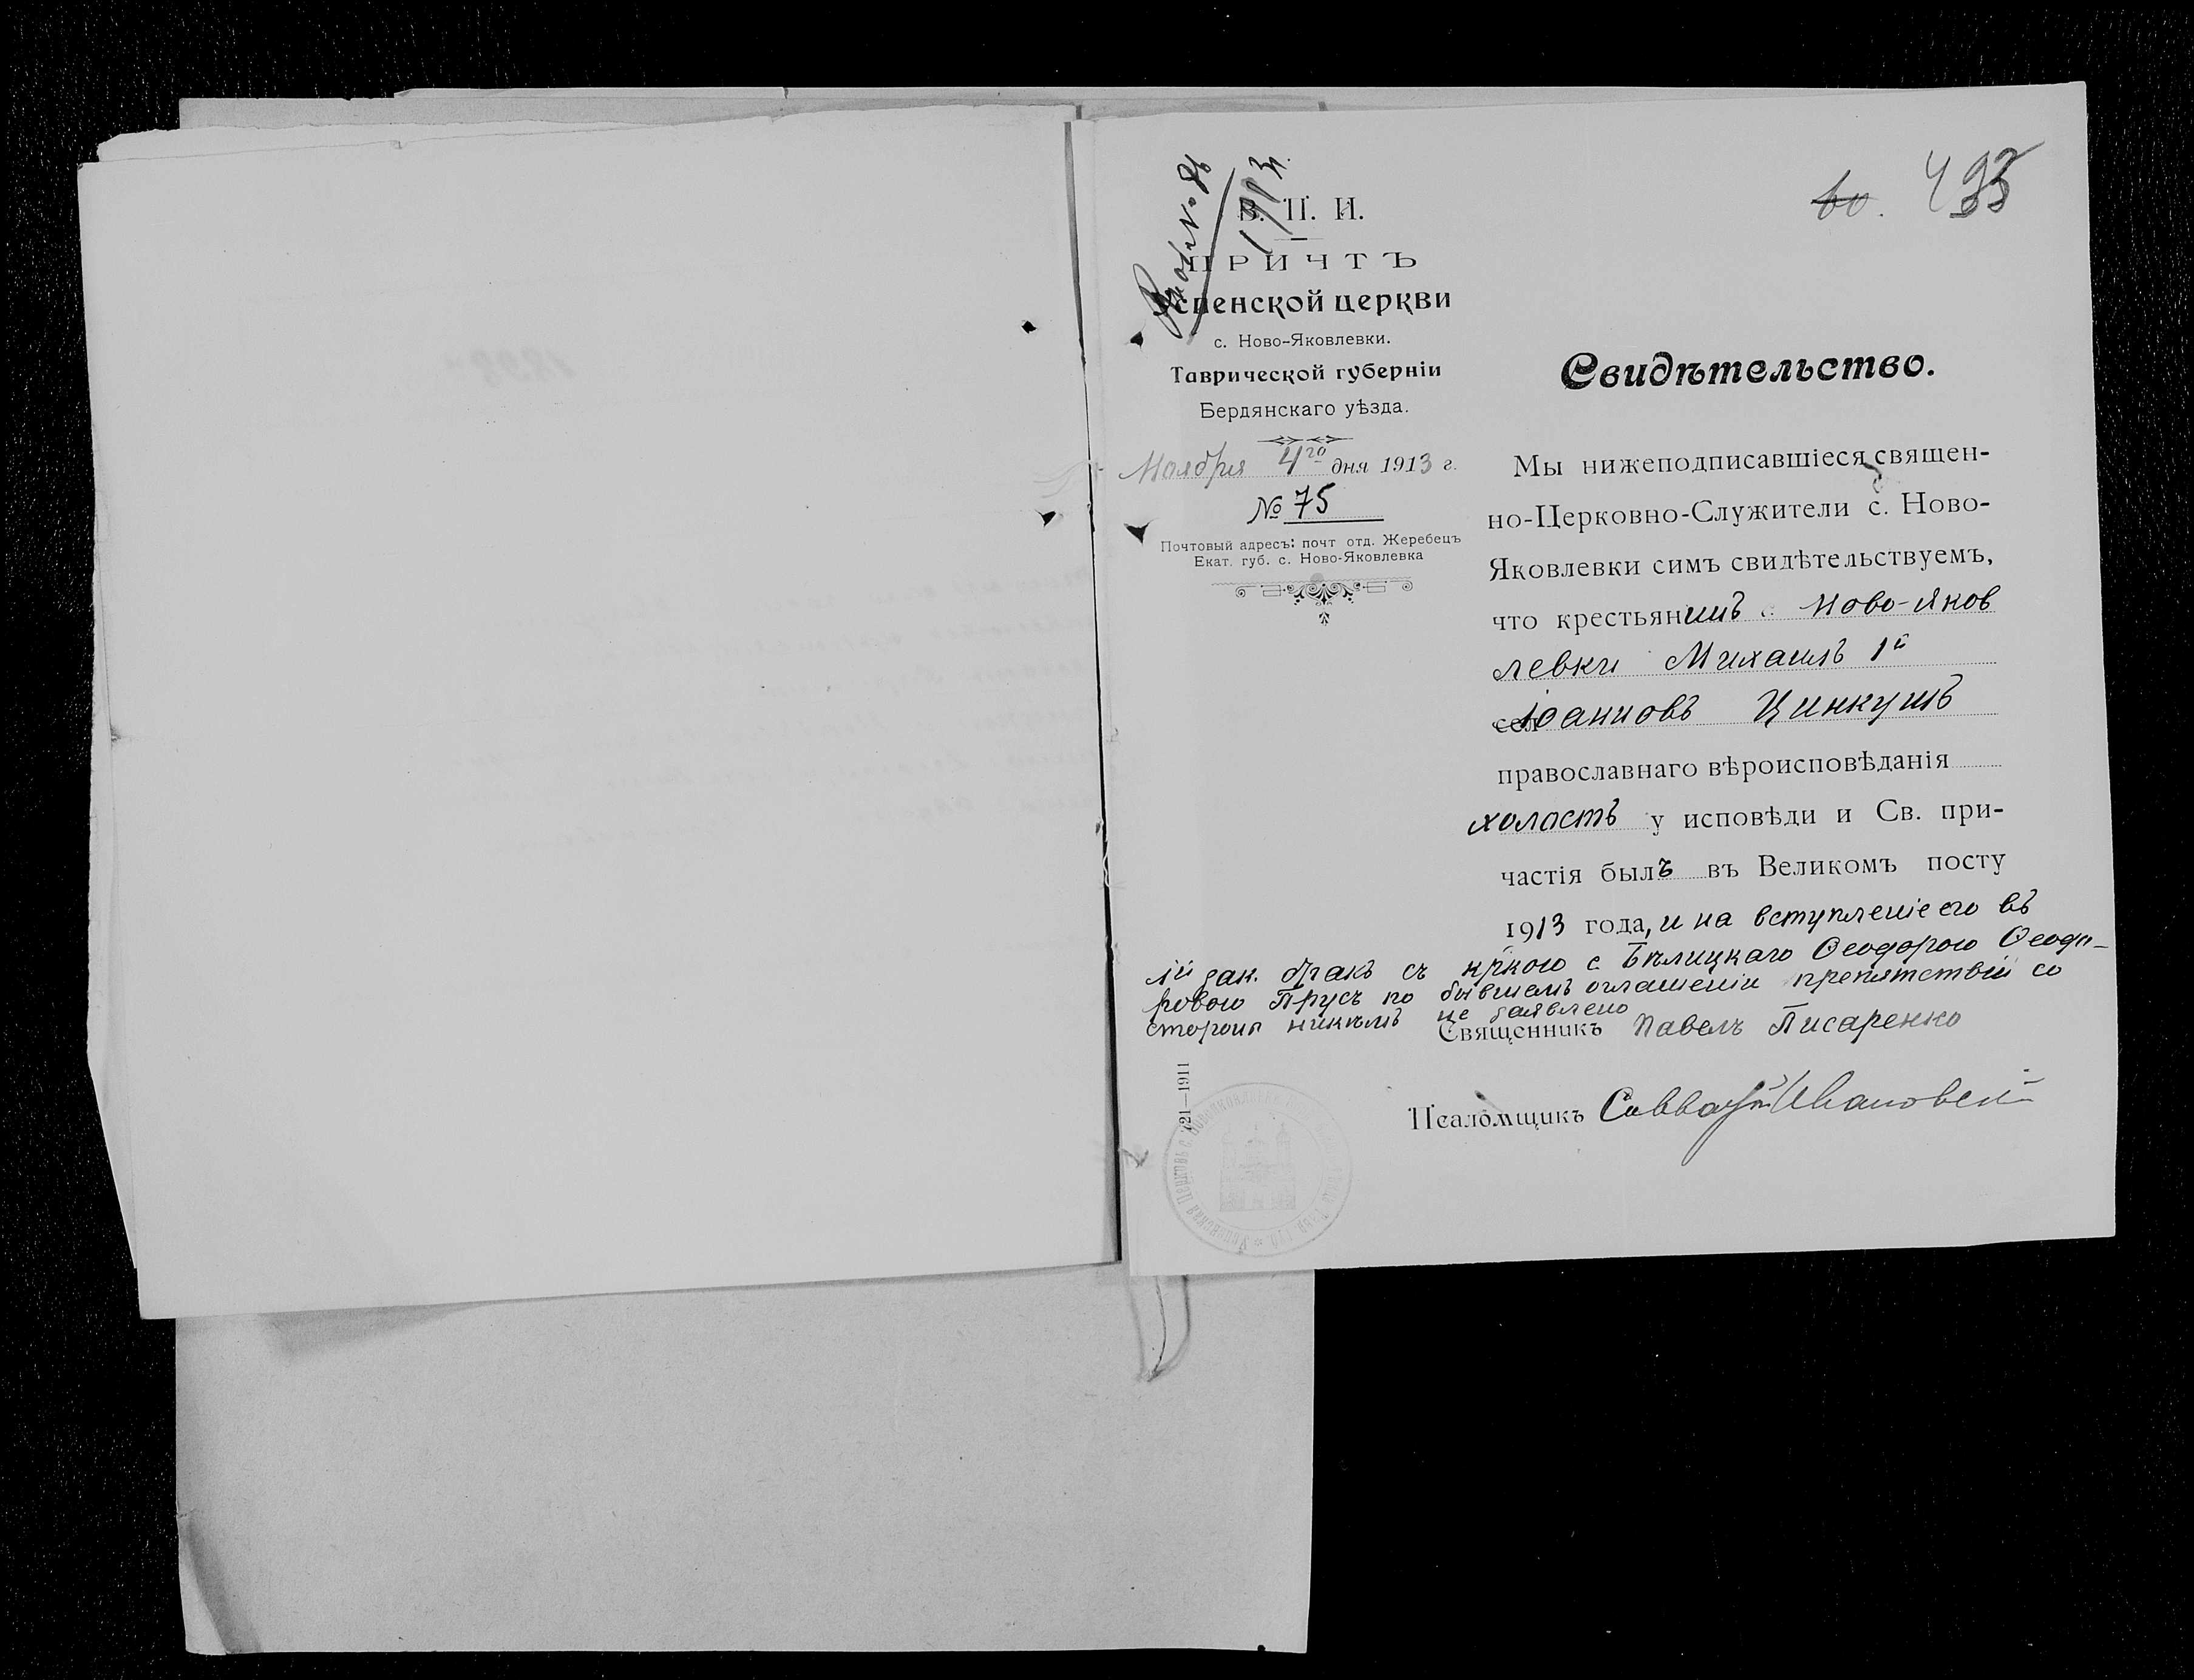 60. 495
№ 86
1913 г.
В. П. И.
ПРИЧТЪ
Успенской церкви
с. Ново-Яковлевки.
Таврической губерніи
Бердянскаго уѣзда.
Ноября 4го дня 1913 г.
№ 75
Почтовый адресъ: почт отд. Жеребецъ
Екат. губ. с. Ново-Яковлевка
Свидѣтельство.
Мы нижеподписавшіеся священ-
но-Церковно-Служители с. Ново-
Яковлевки симъ свидѣтельствуемъ,
что крестьянинъ с. Ново-Яков
левки Михаилъ 1й
Іоанновъ Цинкушъ
православнаго вѣроисповѣданія
холостъ у исповѣди и Св. при-
частія былъ въ Великомъ посту
1913 года, и на вступленіе его въ
1й зак. бракъ съ кр̃кою с Бѣлицкаго Ѳеодорою Ѳеодо-
ровою Прусъ по бывшемъ оглашеніи препятствій со
стороны никѣмъ не заявлено
Священникъ Павелъ Писаренко
Псаломщикъ Савватій Ивановскій
721—1911
Успенская Церковь с. Новояковлевки